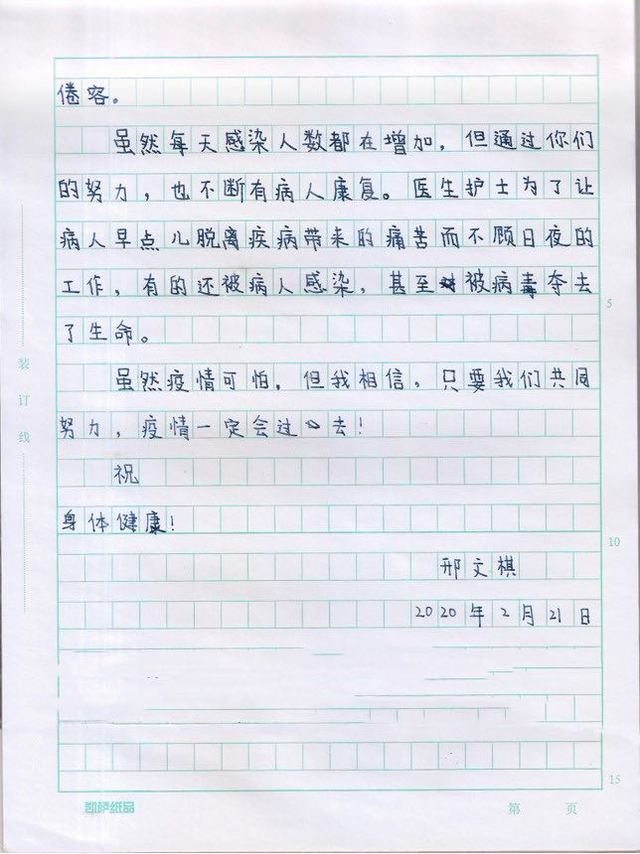 倦容。
虽然每天感染人数都在增加，但通过你们
的努力，也不断有病人康复。医生护士为了让
病人早点儿脱离疾病带来的痛苦而不顾日夜的
工作，有的还被病人感染，甚至被病毒夺去
了生命。
虽然疫情可怕，但我相信，只要我们共同
努力，疫情一定会过去！
祝
身体健康！
邢文棋
2020年2月21日
5
10
15
装订线
凯萨纸品
第 页